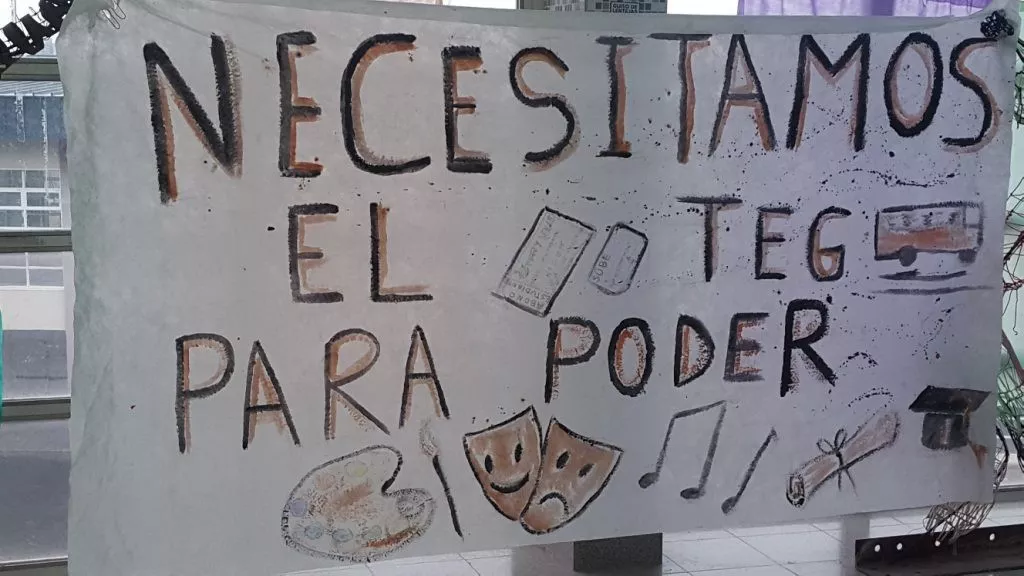 NECESITAMOS
EL TEG
PARA PODER
ABONO
SUBE